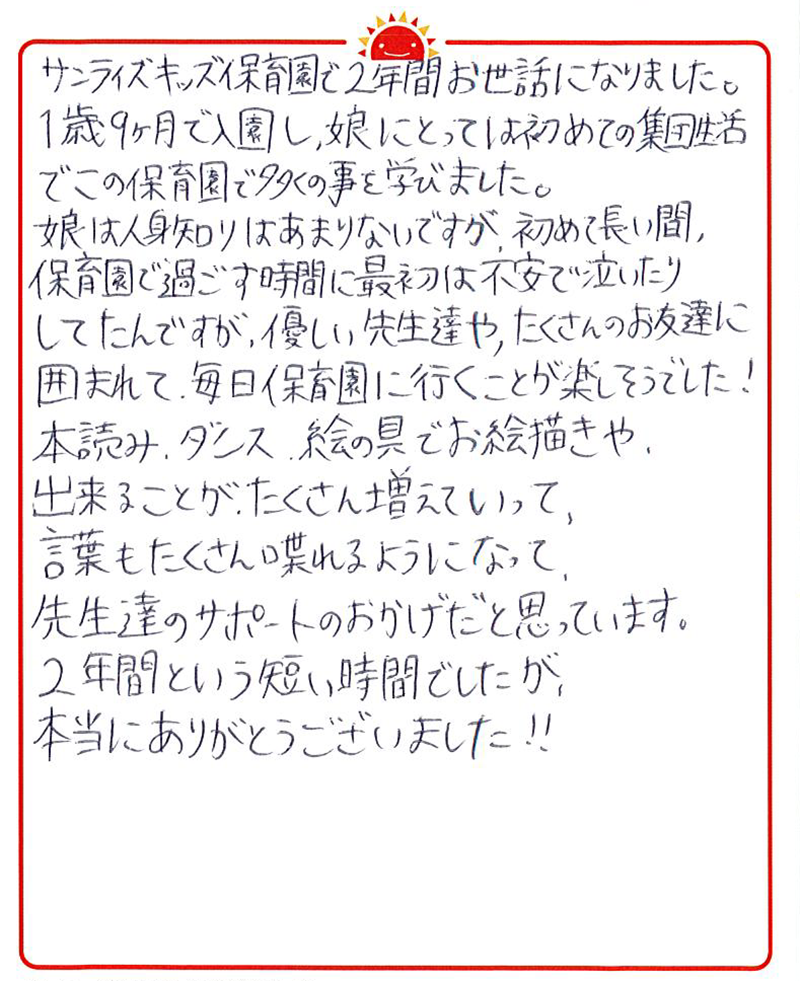 サンライズキッズ保育園で2年間お世話になりました。
1歳9ヶ月で入園し、娘にとっては初めての集団生活
でこの保育園で多くの事を学びました。
娘は人身知りはあまりないですが、初めて長い間、
保育園で過ごす時間に最初は不安で泣いたり
してたんですが、優しい先生達や、たくさんのお友達に
囲まれて、毎日保育園に行くことが楽しそうでした!
本読み、ダンス、絵の具でお絵描きや、
出来ることが、たくさん増えていって、
言葉もたくさん喋れるようになって、
先生達のサポートのおかげだと思っています。
2年間という短い時間でしたが、
本当にありがとうございました!!